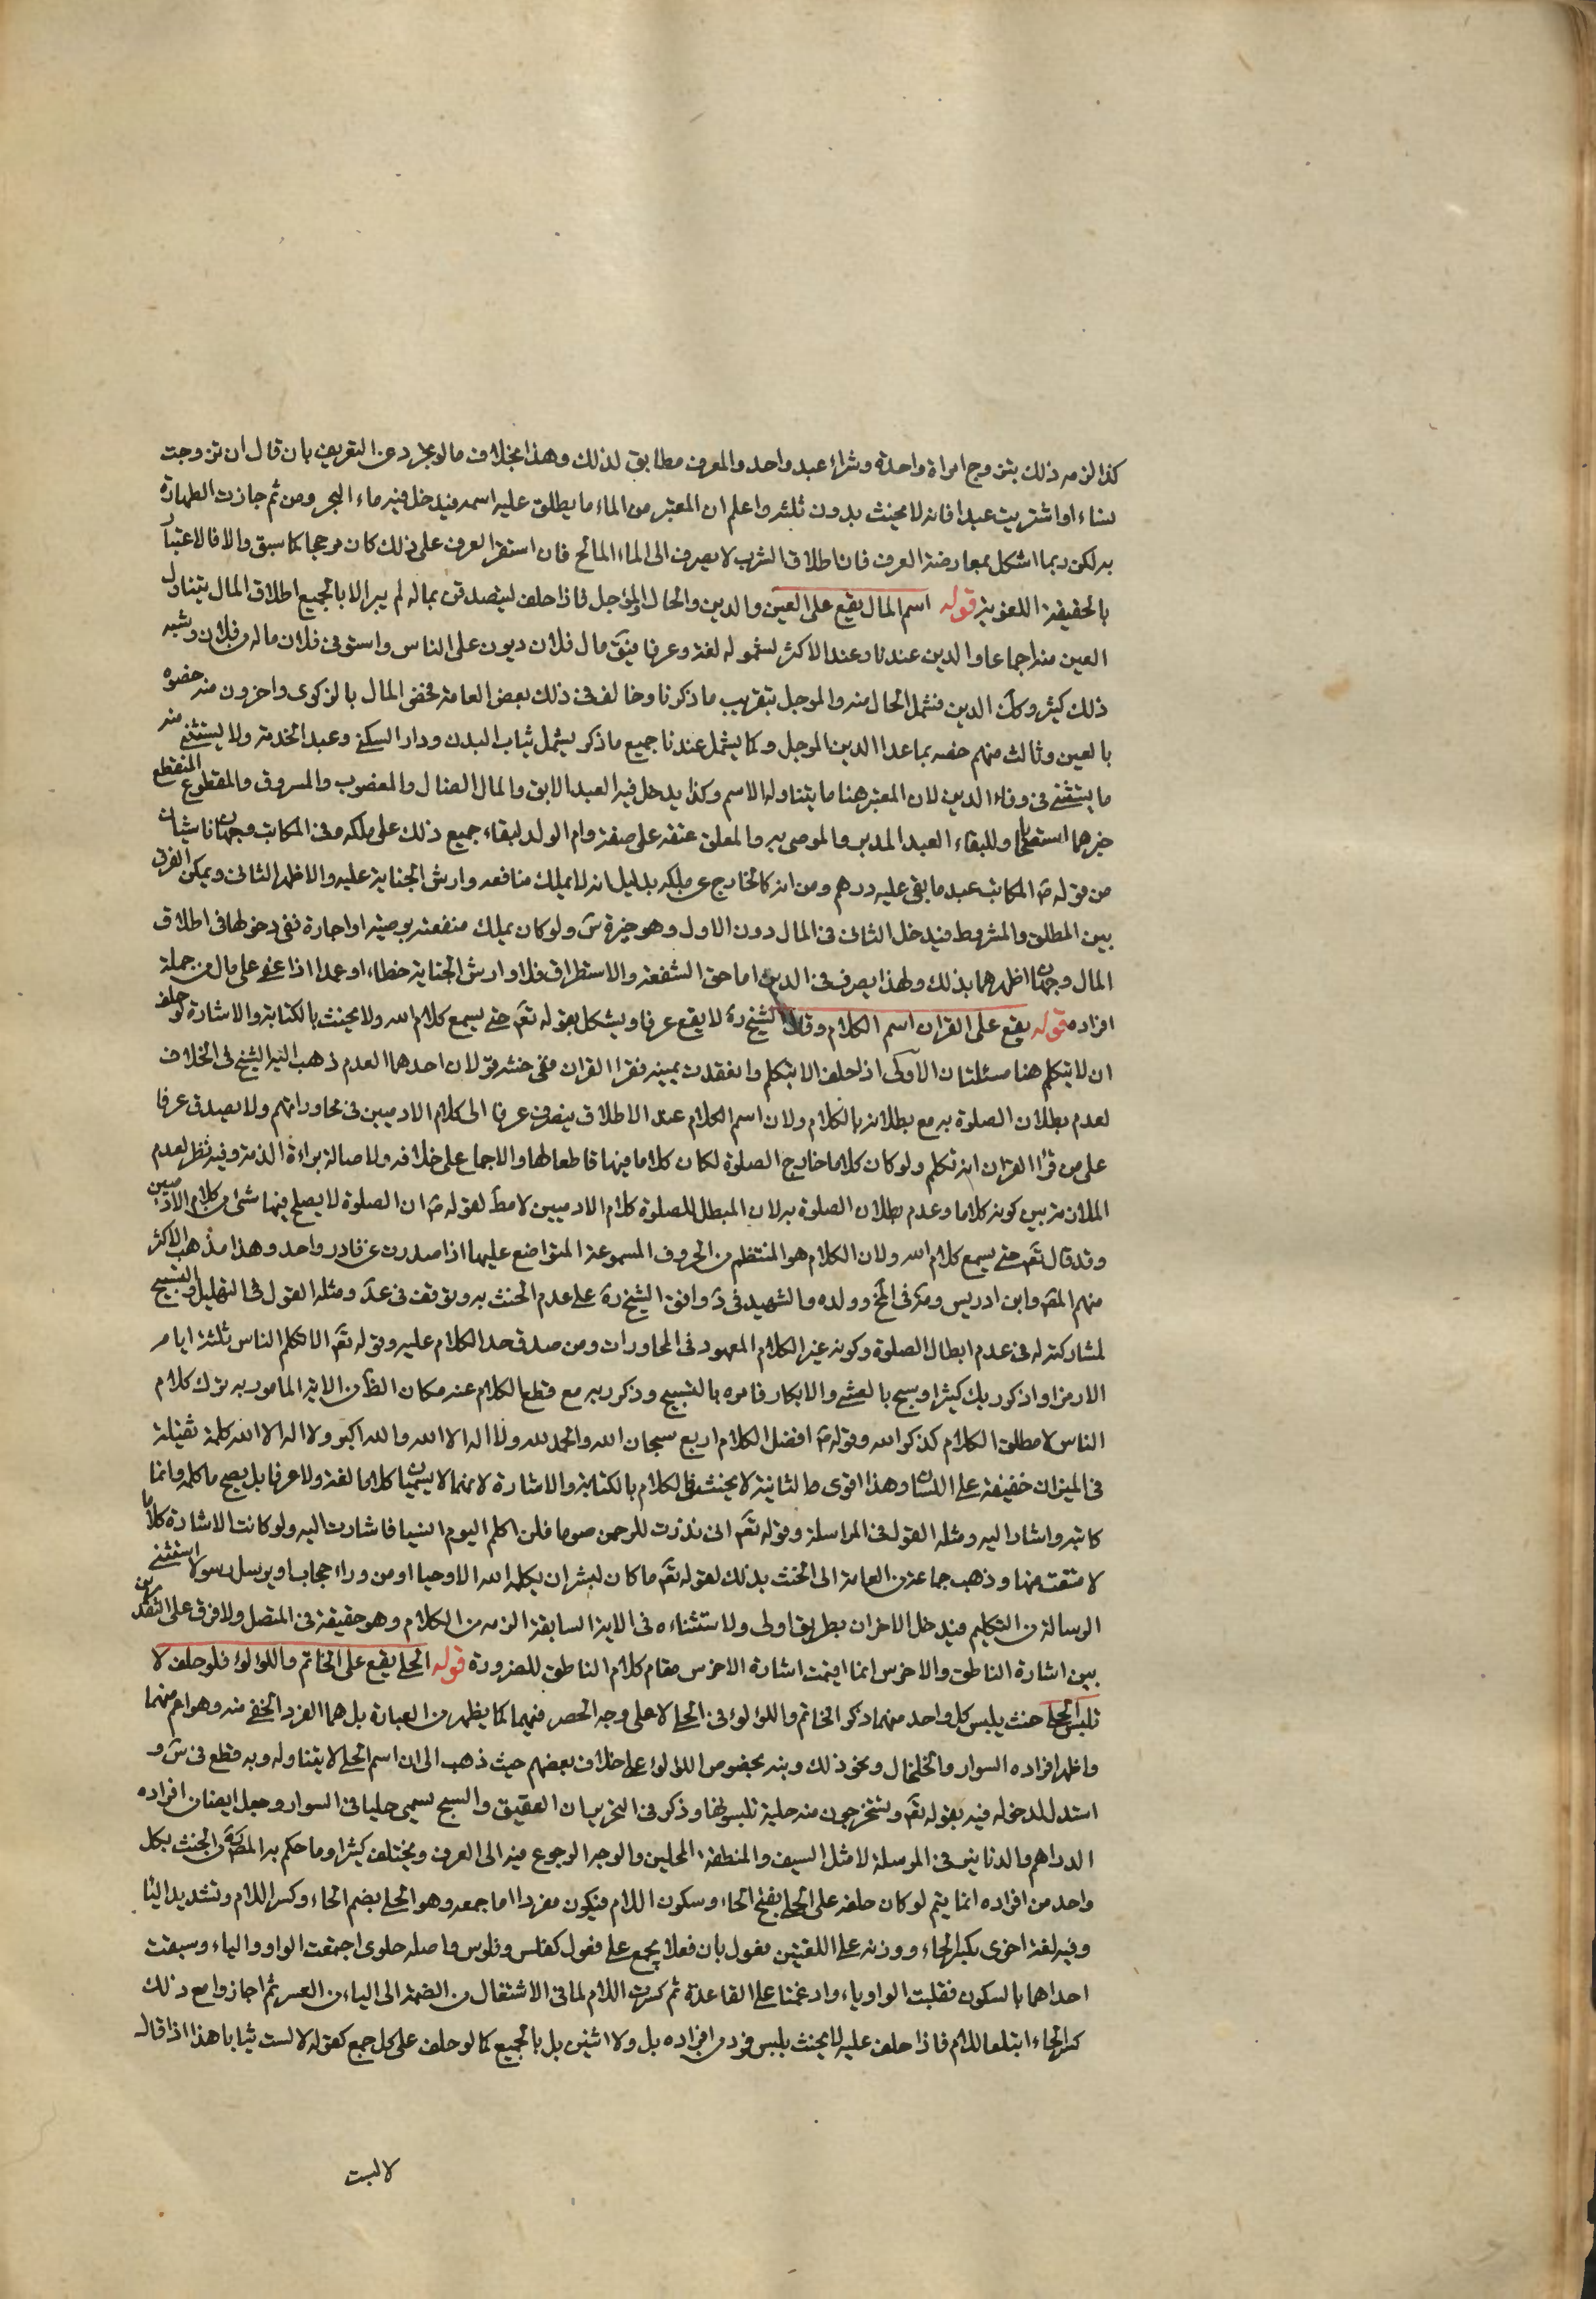 كذا لزمه ذلك بتزوج امراة واحدة وشراء عبد واحد والعرف مطابق لذلك وهذا بخلاف ما لو تجرد عن التعريف بان قال ان تزوجت
نساء او اشتريت عبدا فانه لا يحنث بدون ثلثه واعلم ان المعتبر من الماء ما يطلق عليه اسمه فيدخل فيه ماء البحر ومن ثم جازت الطهارة
به لكن ربما اشكل بمعارضة العرف فان اطلاق الشرب لا يصرف الى الماء المالح فان استقر العرف على ذلك كان مرجحا كما سبق والا فالاعتبار
بالحقيقة اللغوية قوله اسم المال يقع على العين والدين والحال والمؤجل فاذا حلف ليتصدقن بماله لم يبر الا بالجميع اطلاق المال يتناول
العين منه اجماعا والدين عندنا وعند الاكثر لشموله لغة وعرفا فيق مال فلان ديون على الناس واستوفى فلان ماله من فلان وشبه
ذلك كثير وكك الدين فتشمل الحال منه والموجل بتقريب ما ذكرنا وخالف في ذلك بعض العامة فخص المال بالزكوى واخرون منه خصوه
بالعين وثالث منهم خصه بما عدا الدين الموجل وكما يشمل عندنا جميع ما ذكر يشمل ثياب البدن ودار السكنى وعبد الخدمة ولا يستثنى منه
ما يستثنى في وفاء الدين لان المعتبر هنا ما يتناوله الاسم وكذا يدخل فيه العبد الابق والمال الضال والمغصوب والمسروق والمقطوع المنقطع
خبرهما استصحابا وللبقاء العبد المدبر والموصى به والمعلق عتقه على صفة وام الولد لبقاء جميع ذلك على ملكه وفى المكاتب وجهان ناشيان
من قوله ص المكاتب عبد ما بقى عليه درهم ومن انه كالخارج عن ملكه بدليل انه لا يملك منافعه وارش الجناية عليه والاظهر الثانى ويمكن الفرق
بين المطلق والمشروط فيدخل الثانى في المال دون الاول وهو خيرة س ولو كان يملك منفعته بوصية او اجارة ففى دخولها في اطلاق
المال وجهان اظهرهما بذلك ولهذا يصرف في الدين اما حق الشفعة والاستطراق فلا وارش الجناية خطاء او عمدا اذا عفى على مال من جملة
افراده قوله يقع على القران اسم الكلام وقال الشيخ ره لا يقع عرفا ويشكل بقوله تعم حتى يسمع كلام الله ولا يحنث بالكتابة والاشارة لو حلف
ان لا يتكلم هنا مسئلتان الاولى اذا حلف لا يتكلم وانعقدت يمينه فقرا القران ففى حنثه قولان احدهما العدم ذهب اليه الشيخ في الخلاف
لعدم بطلان الصلوة به مع بطلانه بالكلام ولان اسم الكلام عند الاطلاق ينصرف عرفا الى كلام الادميين في محاوراتهم ولا يصدق عرفا
على من قرا القران انه تكلم ولو كان كلاما خارج الصلوة لكان كلاما فيها قاطعا لها والاجماع على خلافه ولاصالة براءة الذمة وفيه نظر لعدم
الملازمة بين كونه كلاما وعدم بطلان الصلوة به لان المبطل للصلوة كلام الادميين لا مط لقوله ص ان الصلوة لا يصلح فيها شئ من كلام الادميين
وقد قال تعم حتى يسمع كلام الله ولان الكلام هو المنتظم من الحروف المسموعة المتواضع عليها اذا صدرت عن قادر واحد وهذا مذهب الاكثر
منهم المص وابن ادريس ومة في لخ وولده والشهيد في د وافق الشيخ ره على عدم الحنث به وتوقف في عد ومثله القول في التهليل والتسبيح
لمشاركته له في عدم ابطال الصلوة وكونه غير الكلام المعهود في المحاورات ومن صدق حد الكلام عليه وقوله تعم الا تكلم الناس ثلثة ايام
الا رمزا واذكر ربك كثيرا وسبح بالعشى والابكار فامره بالتسبيح وذكر ربه مع قطع الكلام عنه مكان الظ من الاية المامور به ترك كلام
الناس لا مطلق الكلام كذكر الله وقوله ص افضل الكلام اربع سبحان الله والحمد لله ولا اله الا الله والله اكبر ولا اله الا الله كلمة ثقيلة
فى الميزان خفيفة على اللسان وهذا اقوى والثانية لا يحنث في الكلام بالكتابة والاشارة لانهما لا يسميان كلاما لغة ولا عرفا بل يصح ما كلمه وانما
كاتبه واشار اليه ومثله القول في المراسلة وقوله تعم انى نذرت للرحمن صوما فلن اكلم اليوم انسيا فاشارت اليه ولو كانت الاشارة كلاما
لامتنعت منها وذهب جماعة من العامة الى الحنث بذلك لقوله تعم ما كان لبشر ان يكلمه الله الا وحيا او من وراء حجاب او يرسل رسولا استثنى
الرسالة من التكليم فيدخل الاخران بطريق اولى ولاستثناءه في الاية السابقة الرمز من الكلام وهو حقيقة في المتصل ولا فرق على التقديرين
بين اشارة الناطق والاخرس انما اقيمت اشارة الاخرس مقام كلام الناطق للضرورة قوله الحلى يقع على الخاتم واللؤلؤ فلو حلف لا
تلبس الحلى حنث بلبس كل واحد منهما ذكر الخاتم واللؤلؤ فى الحلى لا على وجه الحصر فيهما كما يظهر من العبارة بل هما الفرد الخفى منه وهو اعم منهما
واظهر افراده السوار والخلخال ونحو ذلك ونبه بخصوص اللؤلؤ على خلاف بعضهم حيث ذهب الى ان اسم الحلى لا يتناوله وبه قطع في س و
استدل لدخوله فيه بقوله تعم وتستخرجون منه حلية تلبسونها وذكر فى التحرير ان العقيق والسبح يسمى حليا فى السوار وجعل ايضا من افراده
الدراهم والدنانير فى المرسلة لا مثل السيف والمنطقة المحلين والوجه الرجوع فيه الى العرف ويختلف كثيرا وما حكم به المص ره من الحنث بكل
واحد من افراده انما يتم لو كان حلفه على الحلى بفتح الحاء وسكون اللام فيكون مفردا اما جمعه وهو الحلى بضم الحاء وكسر اللام وتشديد الياء
وفيه لغة اخرى بكسر الحاء ووزنه على اللغتين فعول بان فعلا يجمع على فعول كفلس وفلوس واصله حلوى اجتمعت الواو والياء وسبقت
احداهما بالسكون فقلبت الواو ياء وادغمنا على القاعدة ثم كسرت اللام لما فى الاشتغال من الضمة الى الياء من العسر ثم اجازوا مع ذلك
كسر الحاء اتباعا للام فاذا حلف عليه لا يحنث بلبس فرد من افراده بل ولا اثنين بل بالجميع كما لو حلف على كل جمع كقوله لا لبست ثيابا هذا اذا قال
لا لبست